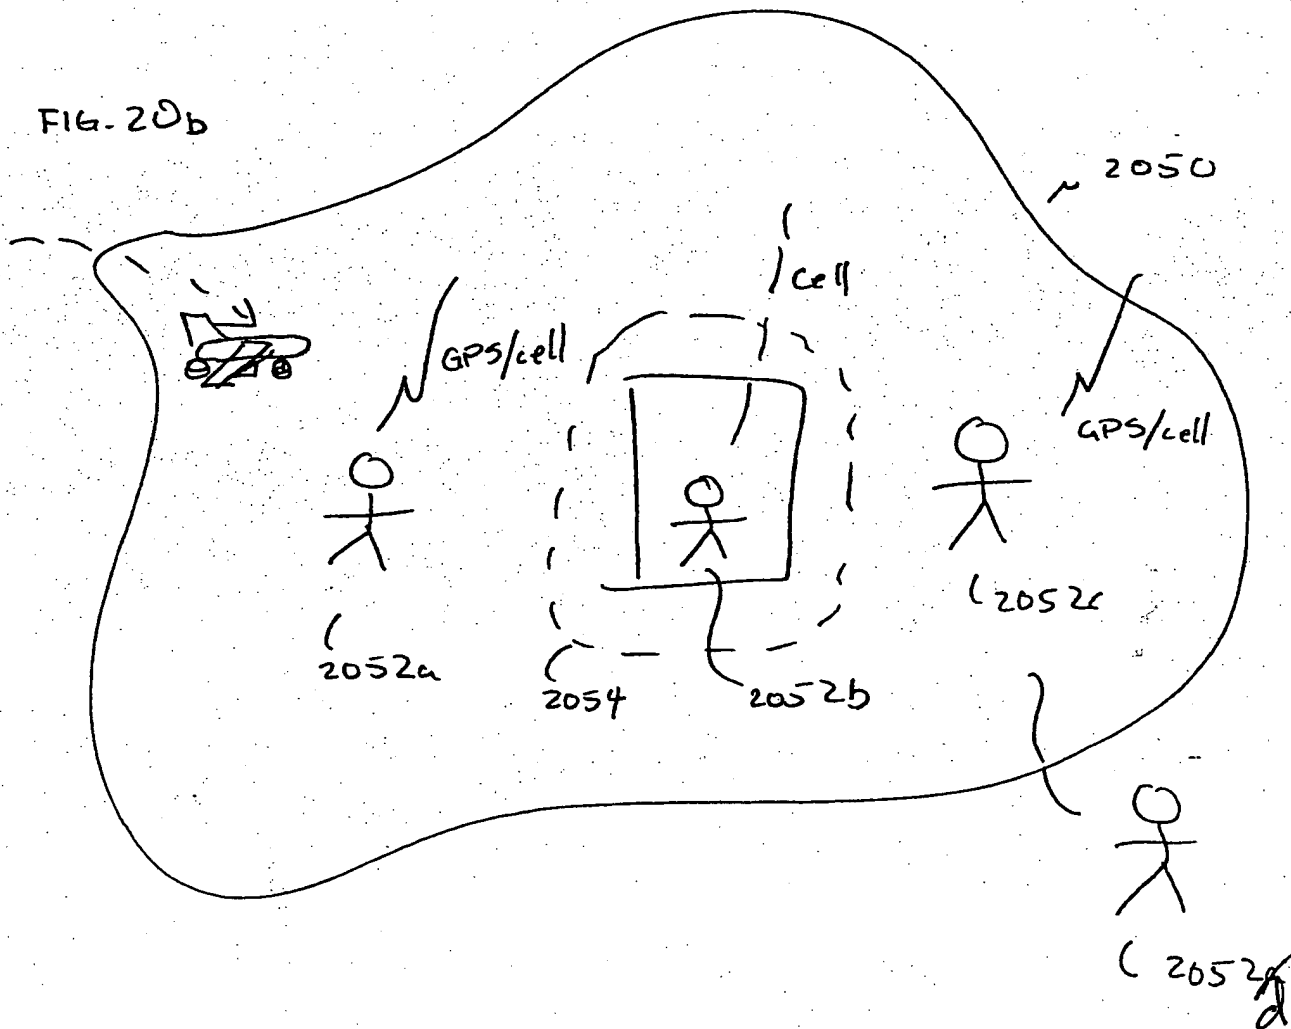 FIG. 20b
2050
cell
GPS/cell
GPS/cell
2052c
2052a
2054
2052b
2052d